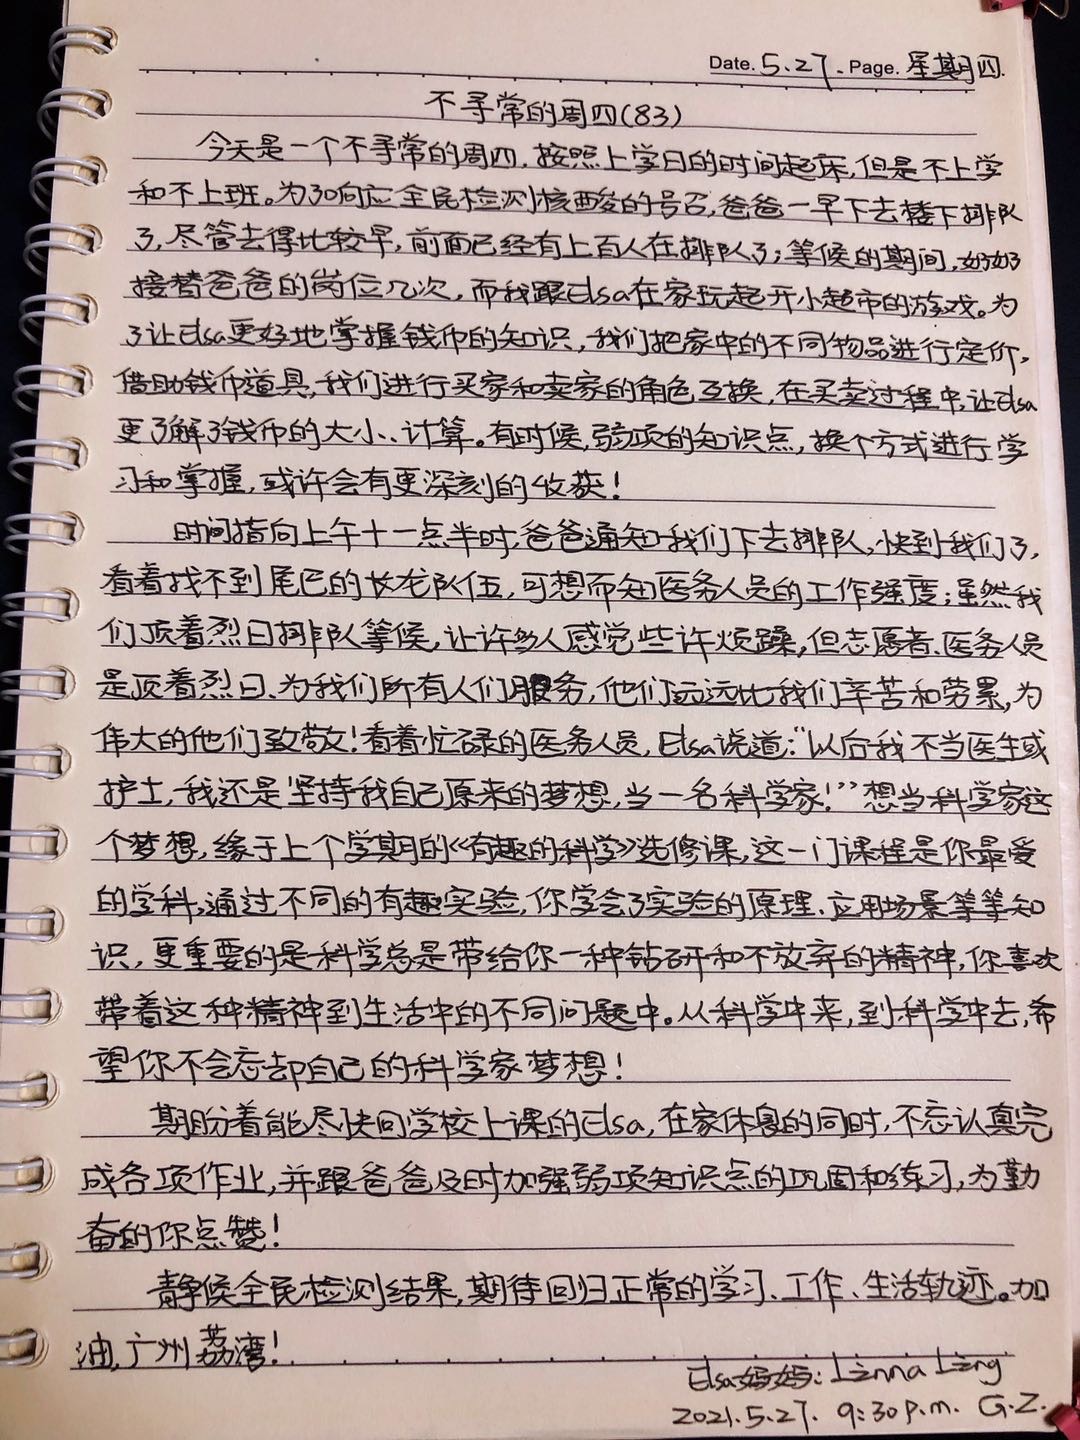 Date. 5.27. Page. 星期四.
不寻常的周四(83)
今天是一个不寻常的周四,按照上学日的时间起床,但是不上学
和不上班。为了响应全民检测核酸的号召,爸爸一早下去楼下排队
了,尽管去得比较早,前面已经有上百人在排队了;等候的期间,奶奶
接替爸爸的岗位几次,而我跟Elsa在家玩起开小超市的游戏。为
了让Elsa更好地掌握钱币的知识,我们把家中的不同物品进行定价,
借助钱币道具,我们进行买家和卖家的角色互换,在买卖过程中,让Elsa
更了解了钱币的大小、计算。有时候,弱项的知识点,换个方式进行学
习和掌握,或许会有更深刻的收获!
时间指向上午十一点半时,爸爸通知我们下去排队,快到我们了,
看着找不到尾巴的长龙队伍,可想而知医务人员的工作强度;虽然我
们顶着烈日排队等候,让许多人感觉些许烦躁,但志愿者、医务人员
是顶着烈日、为我们所有人们服务,他们远远比我们辛苦和劳累,为
伟大的他们致敬!看着忙碌的医务人员,Elsa说道:“以后我不当医生或
护士,我还是坚持我自己原来的梦想,当一名科学家!”想当科学家这
个梦想,缘于上个学期的《有趣的科学》选修课,这一门课程是你最爱
的学科,通过不同的有趣实验,你学会了实验的原理、应用场景等等知
识,更重要的是科学总是带给你一种钻研和不放弃的精神,你喜欢
带着这种精神到生活中的不同问题中。从科学中来,到科学中去,希
望你不会忘却自己的科学家梦想!
期盼着能尽快回学校上课的Elsa,在家休息的同时,不忘认真完
成各项作业,并跟爸爸及时加强弱项知识点的巩固和练习,为勤
奋的你点赞!
静候全民检测结果,期待回归正常的学习、工作、生活轨迹。加
油,广州荔湾!
Elsa妈妈: Linna Ling
2021.5.27. 9:30p.m. G.Z.